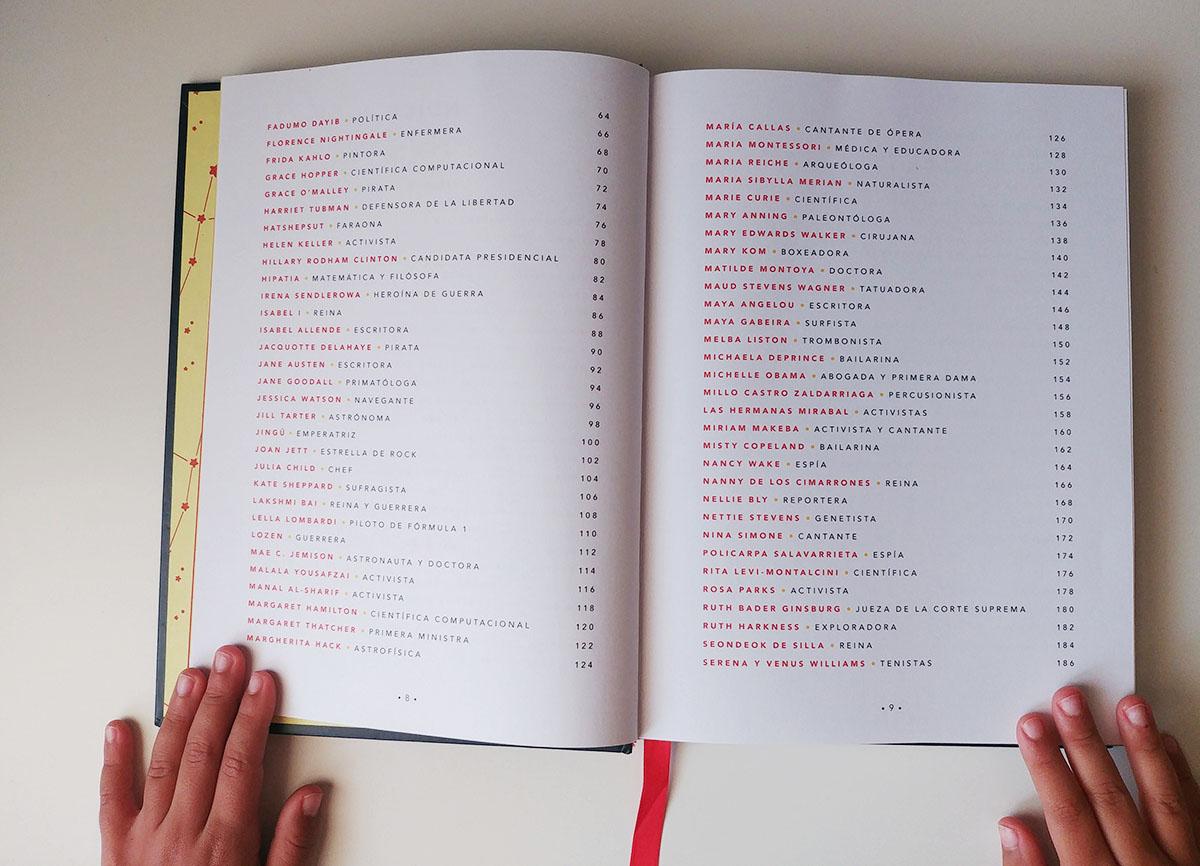 FADUMO DAYIB • POLÍTICA 64
FLORENCE NIGHTINGALE • ENFERMERA 66
FRIDA KAHLO • PINTORA 68
GRACE HOPPER • CIENTÍFICA COMPUTACIONAL 70
GRACE O'MALLEY • PIRATA 72
HARRIET TUBMAN • DEFENSORA DE LA LIBERTAD 74
HATSHEPSUT • FARAONA 76
HELEN KELLER • ACTIVISTA 78
HILLARY RODHAM CLINTON • CANDIDATA PRESIDENCIAL 80
HIPATIA • MATEMÁTICA Y FILÓSOFA 82
IRENA SENDLEROWA • HEROÍNA DE GUERRA 84
ISABEL I • REINA 86
ISABEL ALLENDE • ESCRITORA 88
JACQUOTTE DELAHAYE • PIRATA 90
JANE AUSTEN • ESCRITORA 92
JANE GOODALL • PRIMATÓLOGA 94
JESSICA WATSON • NAVEGANTE 96
JILL TARTER • ASTRÓNOMA 98
JINGŪ • EMPERATRIZ 100
JOAN JETT • ESTRELLA DE ROCK 102
JULIA CHILD • CHEF 104
KATE SHEPPARD • SUFRAGISTA 106
LAKSHMI BAI • REINA Y GUERRERA 108
LELLA LOMBARDI • PILOTO DE FÓRMULA 1 110
LOZEN • GUERRERA 112
MAE C. JEMISON • ASTRONAUTA Y DOCTORA 114
MALALA YOUSAFZAI • ACTIVISTA 116
MANAL AL-SHARIF • ACTIVISTA 118
MARGARET HAMILTON • CIENTÍFICA COMPUTACIONAL 120
MARGARET THATCHER • PRIMERA MINISTRA 122
MARGHERITA HACK • ASTROFÍSICA 124
• 8 •
MARÍA CALLAS • CANTANTE DE ÓPERA 126
MARIA MONTESSORI • MÉDICA Y EDUCADORA 128
MARIA REICHE • ARQUEÓLOGA 130
MARIA SIBYLLA MERIAN • NATURALISTA 132
MARIE CURIE • CIENTÍFICA 134
MARY ANNING • PALEONTÓLOGA 136
MARY EDWARDS WALKER • CIRUJANA 138
MARY KOM • BOXEADORA 140
MATILDE MONTOYA • DOCTORA 142
MAUD STEVENS WAGNER • TATUADORA 144
MAYA ANGELOU • ESCRITORA 146
MAYA GABEIRA • SURFISTA 148
MELBA LISTON • TROMBONISTA 150
MICHAELA DEPRINCE • BAILARINA 152
MICHELLE OBAMA • ABOGADA Y PRIMERA DAMA 154
MILLO CASTRO ZALDARRIAGA • PERCUSIONISTA 156
LAS HERMANAS MIRABAL • ACTIVISTAS 158
MIRIAM MAKEBA • ACTIVISTA Y CANTANTE 160
MISTY COPELAND • BAILARINA 162
NANCY WAKE • ESPÍA 164
NANNY DE LOS CIMARRONES • REINA 166
NELLIE BLY • REPORTERA 168
NETTIE STEVENS • GENETISTA 170
NINA SIMONE • CANTANTE 172
POLICARPA SALAVARRIETA • ESPÍA 174
RITA LEVI-MONTALCINI • CIENTÍFICA 176
ROSA PARKS • ACTIVISTA 178
RUTH BADER GINSBURG • JUEZA DE LA CORTE SUPREMA 180
RUTH HARKNESS • EXPLORADORA 182
SEONDEOK DE SILLA • REINA 184
SERENA Y VENUS WILLIAMS • TENISTAS 186
• 9 •